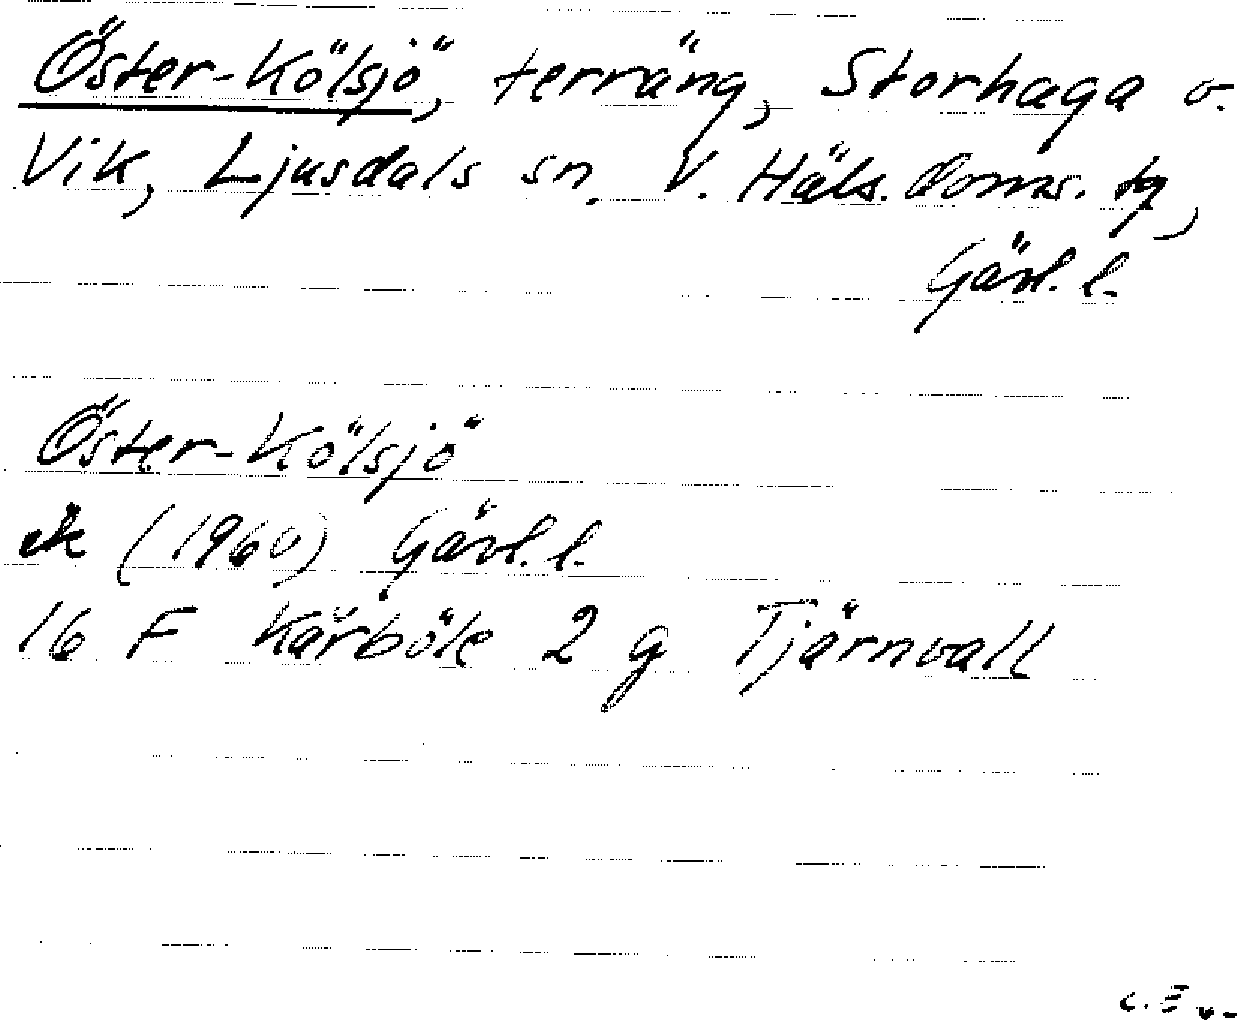 Öster-Kölsjö, terräng, Storhaga o.
Vik, Ljusdals sn. V. Häls. doms. tg,
Gävl. l.
Öster-Kölsjö
ek (1960) Gävl. l.
16 F Kårböle 2 g Tjärnvall